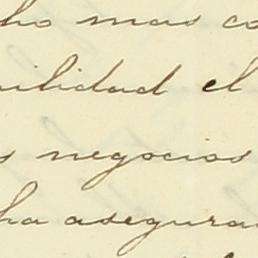 ho mas co
ilidad el
s negocios
ha asegura